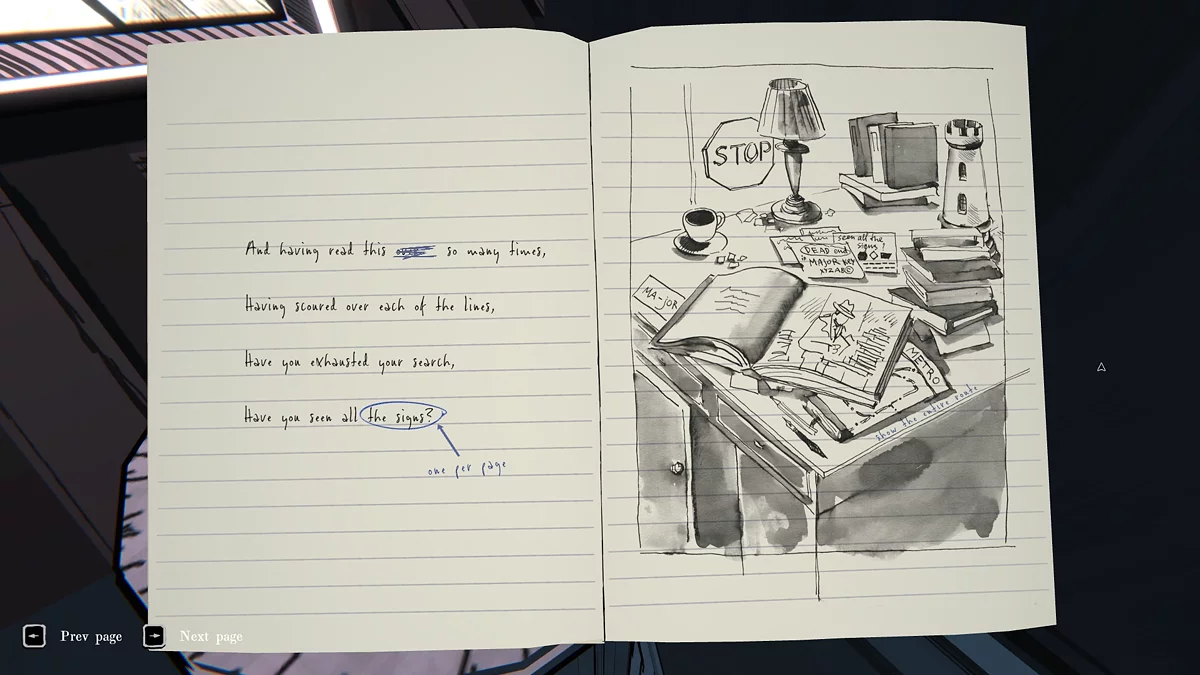 And having read this so many times,
Having scoured over each of the lines,
Have you exhausted your search,
Have you seen all the signs?
one per page
STOP
seen all the
signs?
DEAD
MAJOR KEY
XYZAB©
MA-JOR
METRO
show the entire route
Prev page
Next page